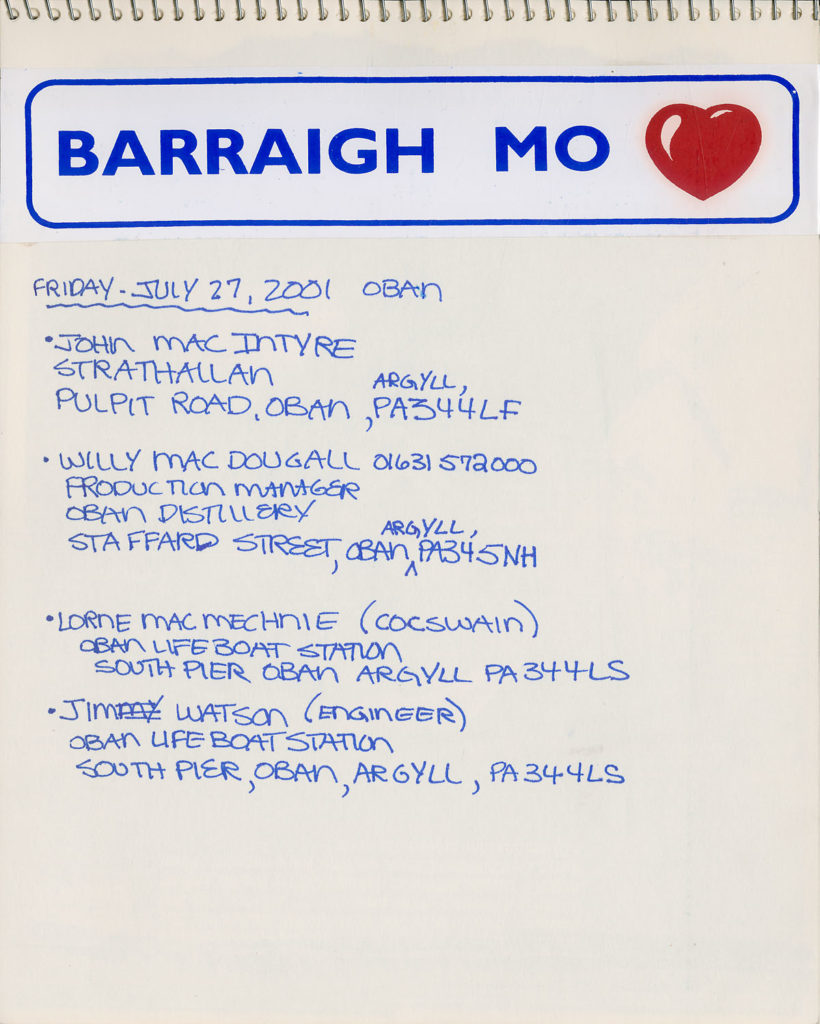 BARRAIGH MO
FRIDAY - JULY 27, 2001 OBAN
• JOHN MAC INTYRE
STRATHALLAN
ARGYLL,
PULPIT ROAD, OBAN, PA344LF
• WILLY MAC DOUGALL 01631 572000
PRODUCTION MANAGER
OBAN DISTILLERY
ARGYLL,
STAFFARD STREET, OBAN, PA345NH
• LORNE MAC MECHNIE (COCSWAIN)
OBAN LIFE BOAT STATION
SOUTH PIER OBAN ARGYLL PA344LS
• JIM WATSON (ENGINEER)
OBAN LIFE BOAT STATION
SOUTH PIER, OBAN, ARGYLL, PA344LS